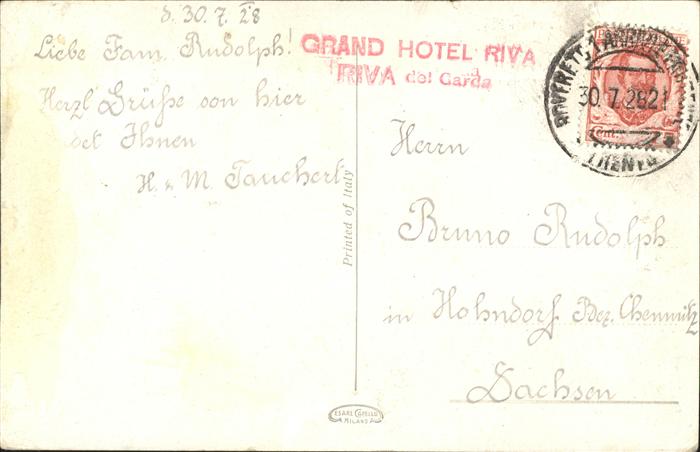 d. 30.7.28
Liebe Fam. Rudolph!
Herzl Grüße von hier
Ihnen
H. u M. Taucherl
GRAND HOTEL RIVA
RIVA del Garda
30.7.28 21
Herrn
Bruno Rudolph
in Hohndorf Bez. Chemnitz
Sachsen
Printed of Italy
CESARE CAPELLO
MILANO